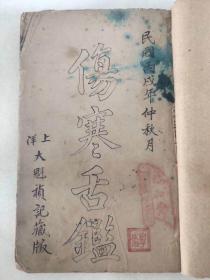 民國壬戌年仲秋月
傷寒舌鑑
上洋大魁禎記藏版